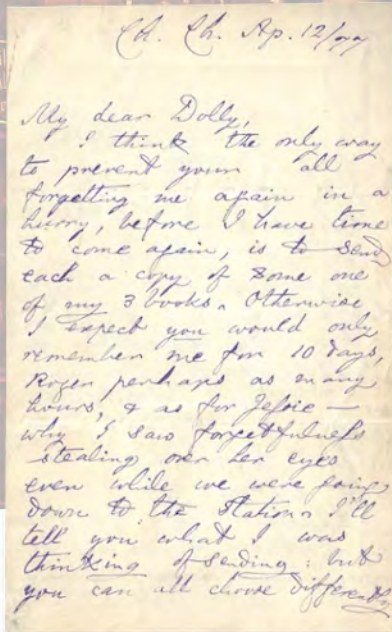 Ch. Ch. Ap. 12/77
My dear Dolly,
I think the only way
to prevent your all
forgetting me again in a
hurry, before I have time
to come again, is to send
each a copy of some one
of my 3 books. Otherwise
I expect you would only
remember me for 10 days,
Roger perhaps as many
hours, & as for Jessie —
why I saw forgetfulness
stealing over her eyes
even while we were going
down to the Station. I'll
tell you what I was
thinking of sending: but
you can all choose differently